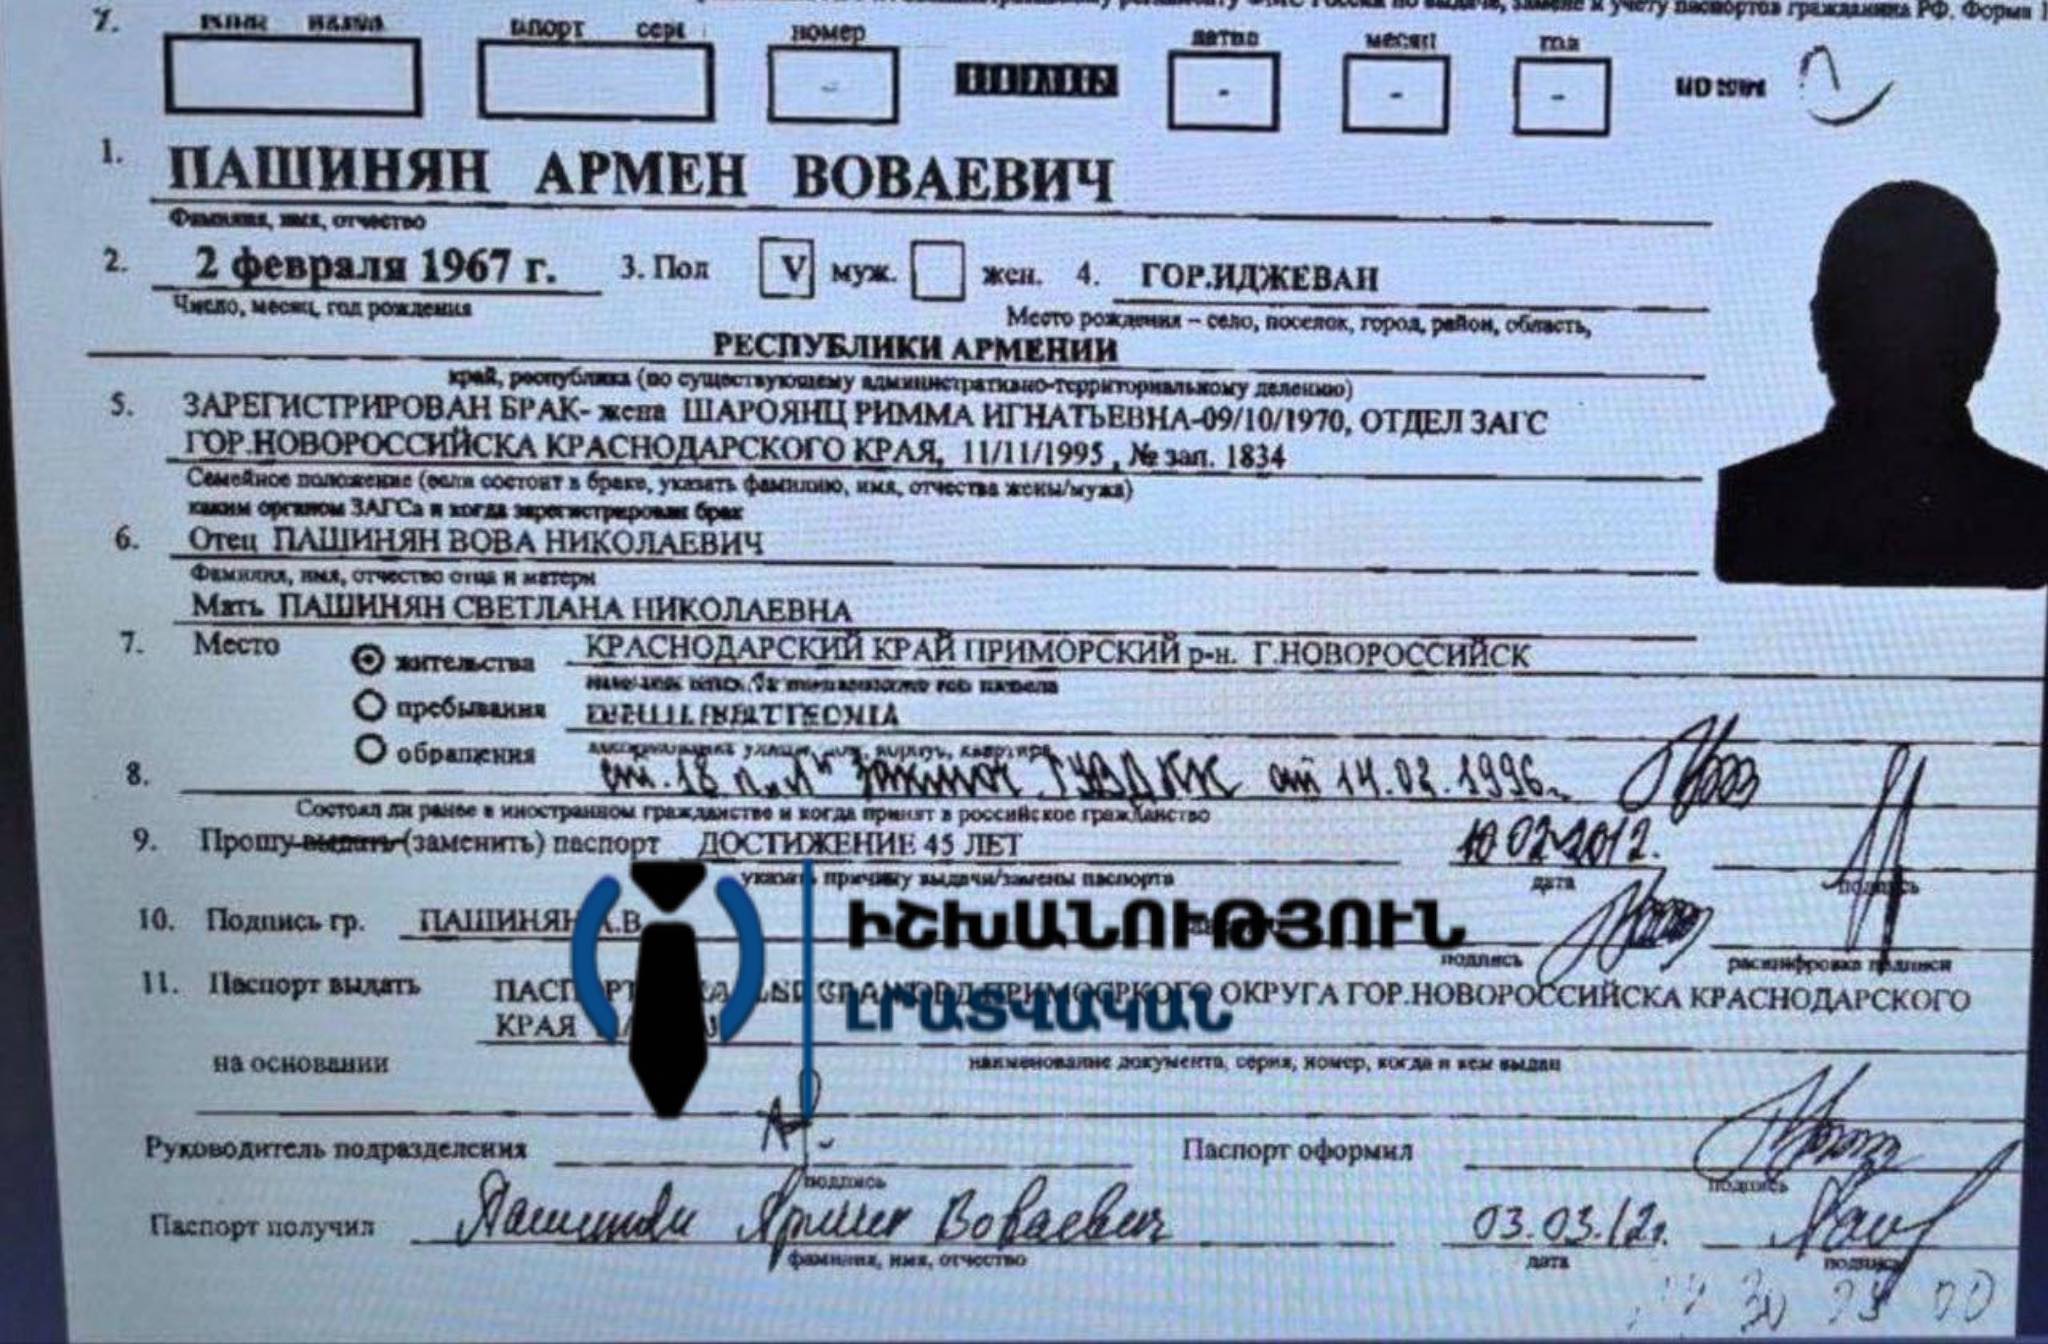 регламенту ФМС России по выдаче, замене и учету паспортов гражданина РФ. Форма 1
номер
месяц
1. ПАШИНЯН АРМЕН ВОВАЕВИЧ
Фамилия, имя, отчество
2. 2 февраля 1967 г. 3. Пол V муж. жен. 4. ГОР.ИДЖЕВАН
Число, месяц, год рождения Место рождения – село, поселок, город, район, область,
РЕСПУБЛИКИ АРМЕНИИ
край, республика (по существующему административно-территориальному делению)
5. ЗАРЕГИСТРИРОВАН БРАК- жена ШАРОЯНЦ РИММА ИГНАТЬЕВНА-09/10/1970, ОТДЕЛ ЗАГС
ГОР.НОВОРОССИЙСКА КРАСНОДАРСКОГО КРАЯ, 11/11/1995 , № зап. 1834
Семейное положение (если состоит в браке, указать фамилию, имя, отчества жены/мужа)
каким органом ЗАГСа и когда зарегистрирован брак
6. Отец ПАШИНЯН ВОВА НИКОЛАЕВИЧ
Фамилия, имя, отчество отца и матери
Мать ПАШИНЯН СВЕТЛАНА НИКОЛАЕВНА
7. Место жительства КРАСНОДАРСКИЙ КРАЙ ПРИМОРСКИЙ р-н. Г.НОВОРОССИЙСК
пребывания
обращения
8. от 14.02.1996
Состоял ли ранее в иностранном гражданстве и когда принят в российское гражданство
9. Прошу выдать (заменить) паспорт ДОСТИЖЕНИЕ 45 ЛЕТ 10 02 2012.
указать причину выдачи/замены паспорта дата подпись
10. Подпись гр. ПАШИНЯН А.В
подпись расшифровка подписи
ԻՇԽԱՆՈՒԹՅՈՒՆ
ԼՐԱՏՎԱԿԱՆ
11. Паспорт выдать ОКРУГА ГОР.НОВОРОССИЙСКА КРАСНОДАРСКОГО
КРАЯ
на основании наименование документа, серия, номер, когда и кем выдан
Руководитель подразделения Паспорт оформил
подпись подпись
Паспорт получил Пашинян Армен Воваевич 03.03.12г.
фамилия, имя, отчество дата подпись